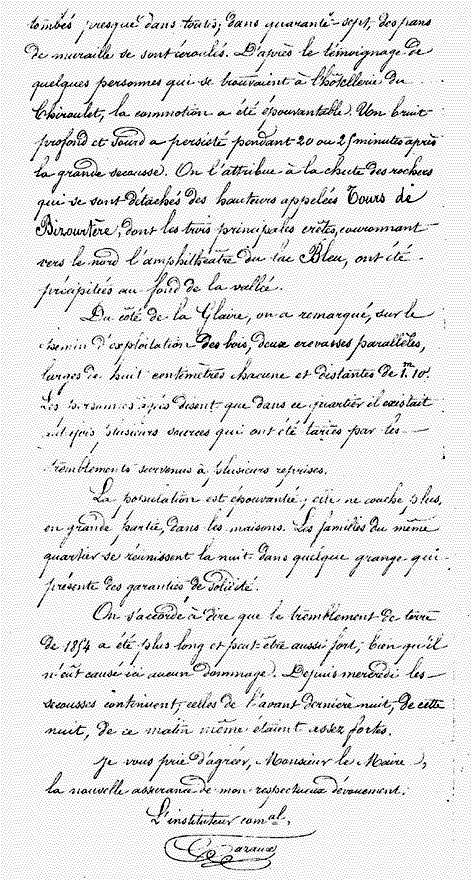 tombés presque dans toutes; dans quarante-sept, des pans
de muraille se sont écroulés. D'après le témoignage de
quelques personnes qui se trouvaient à l'hôtellerie du
Chiroulet, la commotion a été épouvantable. Un bruit
profond et sourd a persisté pendant 20 ou 25 minutes après
la grande secousse. On l'attribue à la chute des rochers
qui se sont détachés des hauteurs appelées Tours de
Bizourtère, dont les trois principales crêtes, couronnant
vers le nord l'amphithéâtre du lac Bleu, ont été
précipitées au fond de la vallée.
Du côté de la Glaire, on a remarqué, sur le
chemin d'exploitation des bois, deux crevasses parallèles,
larges de huit centimètres chacune et distantes de 1m 10c.
Les personnes âgées disent que dans ce quartier il existait
autrefois plusieurs sources qui ont été taries par les
tremblements survenus à plusieurs reprises.
La population est épouvantée; elle ne couche plus,
en grande partie, dans les maisons. Les familles du même
quartier se réunissent la nuit dans quelque grange qui
présente des garanties de solidité.
On s'accorde à dire que le tremblement de terre
de 1854 a été plus long et peut-être aussi fort; bien qu'il
n'eût causé ici aucun dommage. Depuis mercredi les
secousses continuent; celles de l'avant dernière nuit, de cette
nuit, de ce matin même étaient assez fortes.
Je vous prie d'agréer, Monsieur le Maire,
la nouvelle assurance de mon respectueux dévouement.
L'instituteur comal,